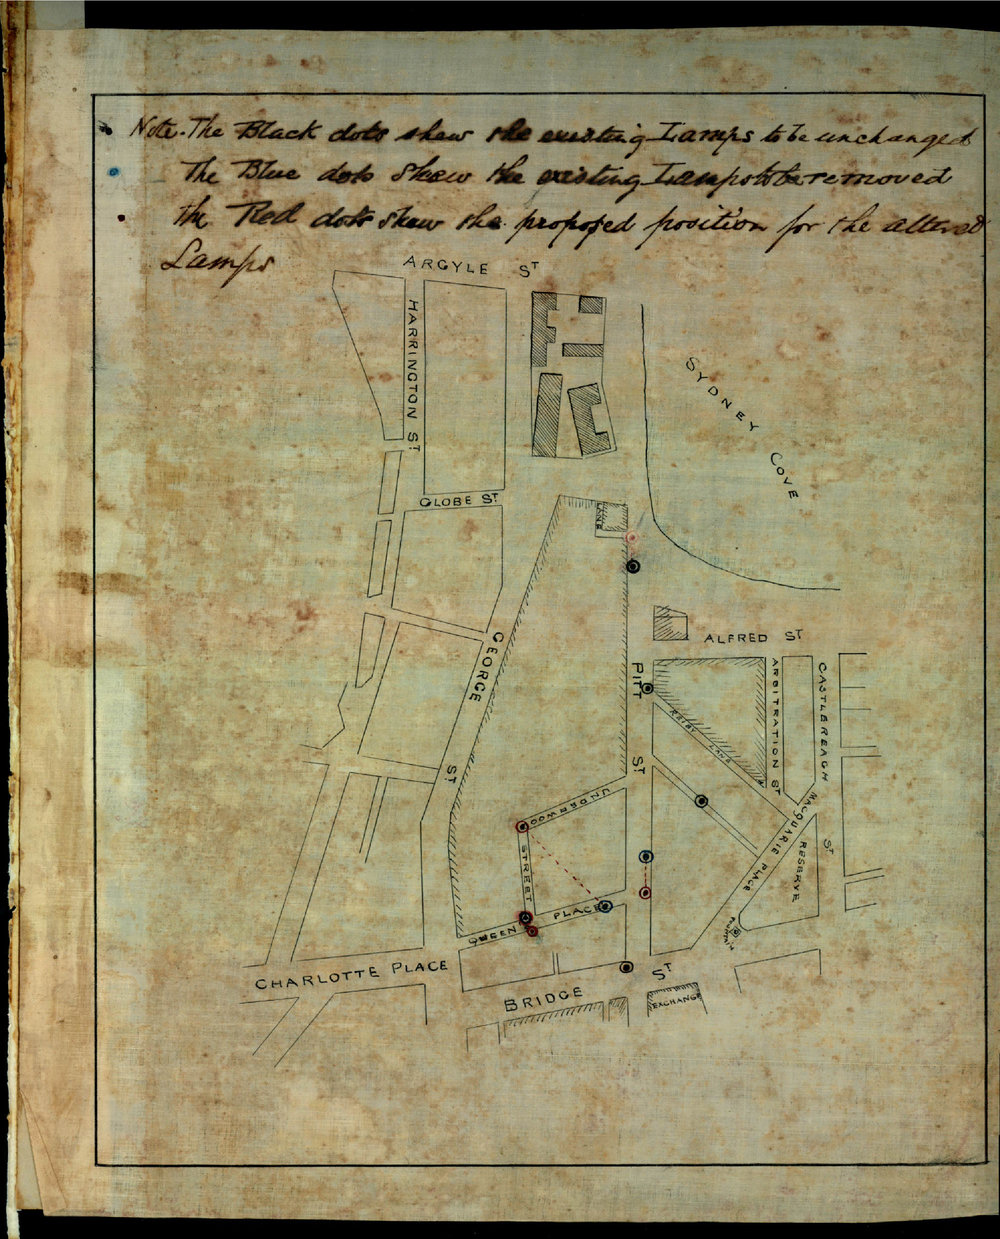 Note. The Black dots shew the existing Lamps to be unchanged
The Blue dots Shew the existing Lamps to be removed
the Red dots shew the proposed position for the altered
Lamps
ARGYLE ST
HARRINGTON ST
SYDNEY COVE
GLOBE ST
LANE
ALFRED ST
GEORGE ST
PITT ST
ARBITRATION ST
CASTLEREAGH ST
REIBY LANE
UNDERWOOD STREET
MACQUARIE PLACE
RESERVE
QUEEN PLACE
FOUNTAIN
CHARLOTTE PLACE
BRIDGE ST
EXCHANGE